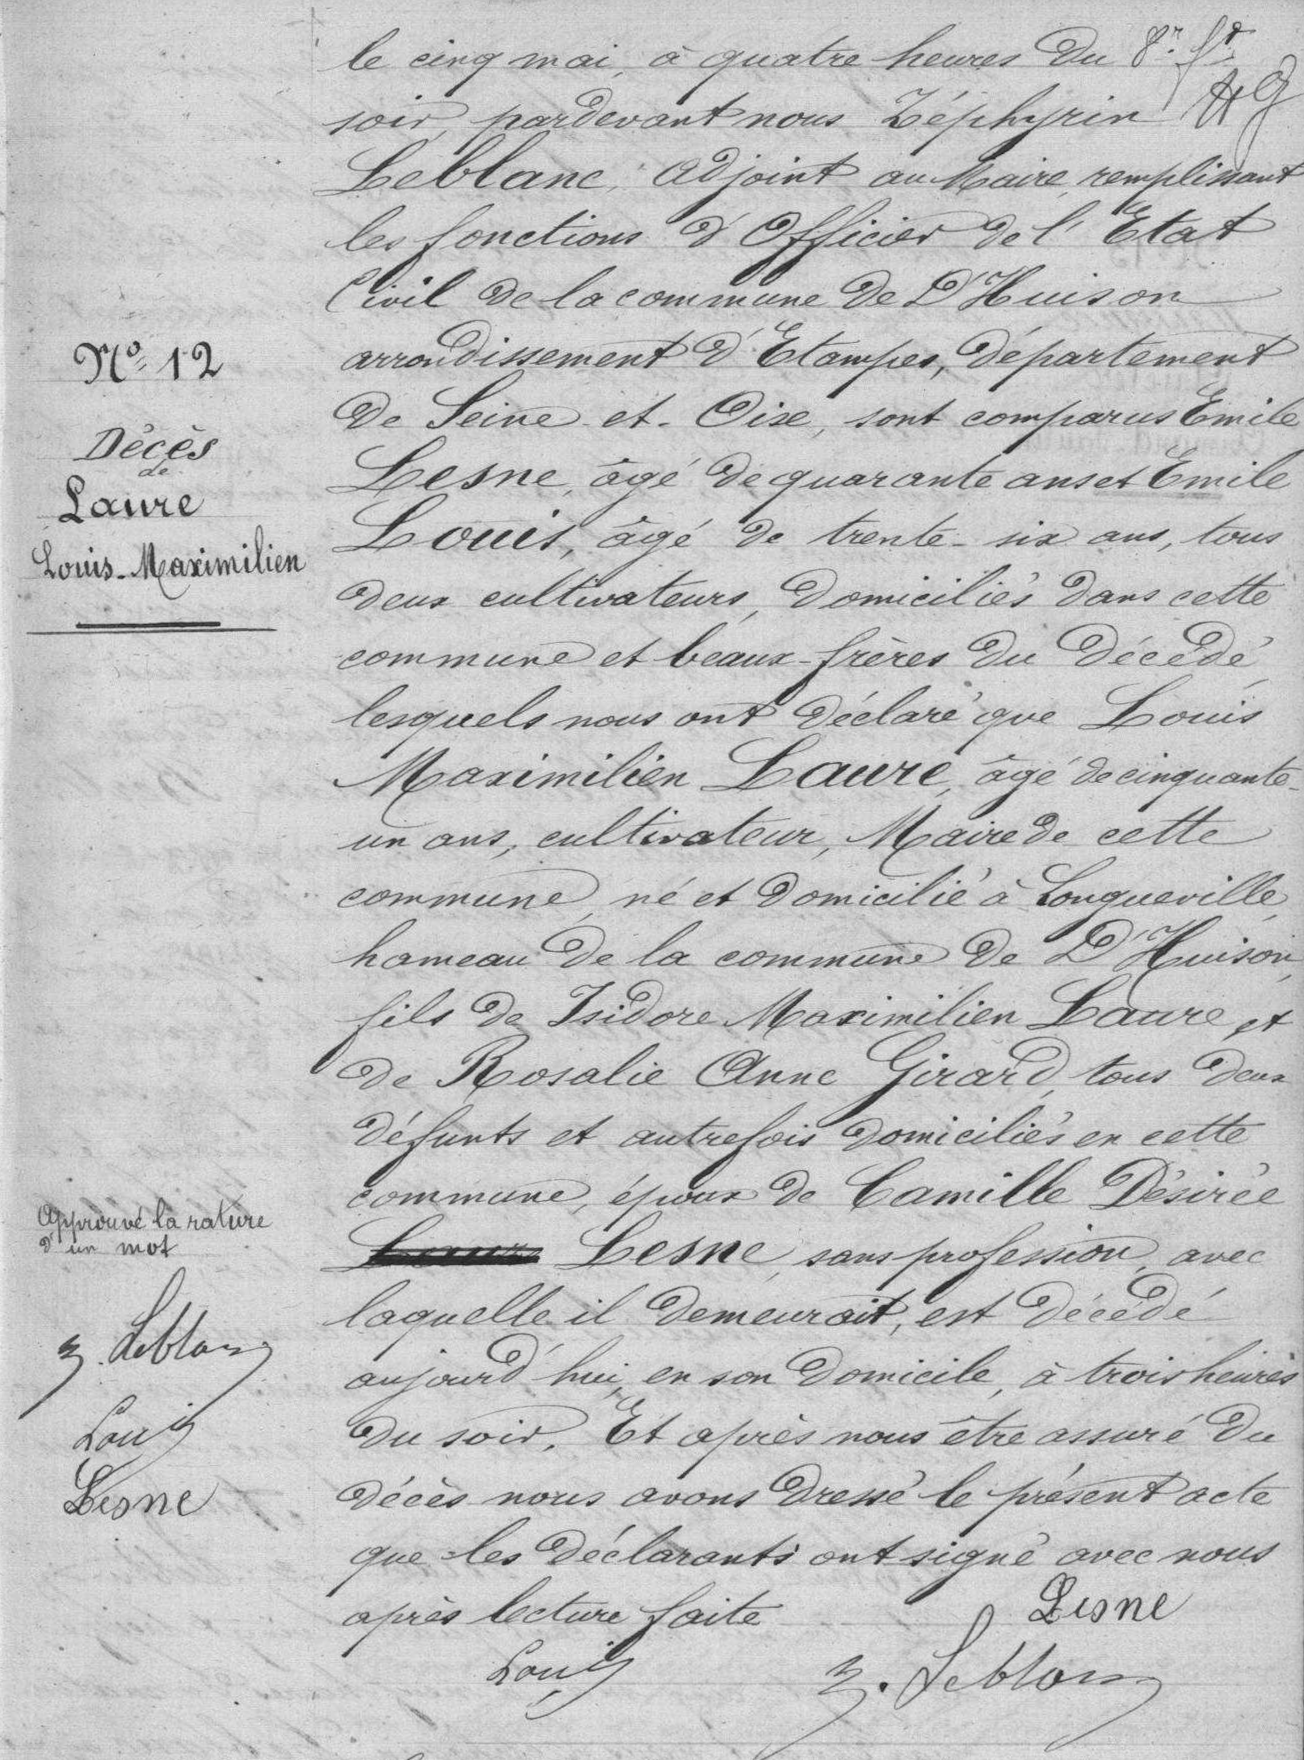 le cinq mai, à quatre heures du
soir, pardevant nous Zéphyrin
Leblanc, adjoint au Maire, remplissant
les fonctions d'Officier de l'Etat
Civil de la commune de D'Huison
arrondissement d'Etampes, département
de Seine-et-Oise, sont comparus Emile
Lesne, âgé de quarante ans et Emile
Louis, âgé de trente-six ans, tous
deux cultivateurs, domiciliés dans cette
commune et beaux-frères du décédé,
lesquels nous ont déclaré que Louis
Maximilien Laure, âgé de cinquante-
un ans, cultivateur, Maire de cette
commune, né et domicilié à Longueville,
hameau de la commune de D'Huison,
fils de Isidore Maximilien Laure, et
de Rosalie Anne Girard, tous deux
défunts et autrefois domiciliés en cette
commune, époux de Camille Désirée
Lesne, sans profession, avec
laquelle il demeurait, est décédé
aujourd'hui, en son domicile, à trois heures
du soir. Et après nous être assuré du
décès nous avons dressé le présent acte
que les déclarants ont signé avec nous
après lecture faite
Lesne
Louis
Z. Leblanc
No 12
Décès
de
Laure
Louis-Maximilien
Approuvé la rature
d'un mot
Z. Leblanc
Louis
Lesne